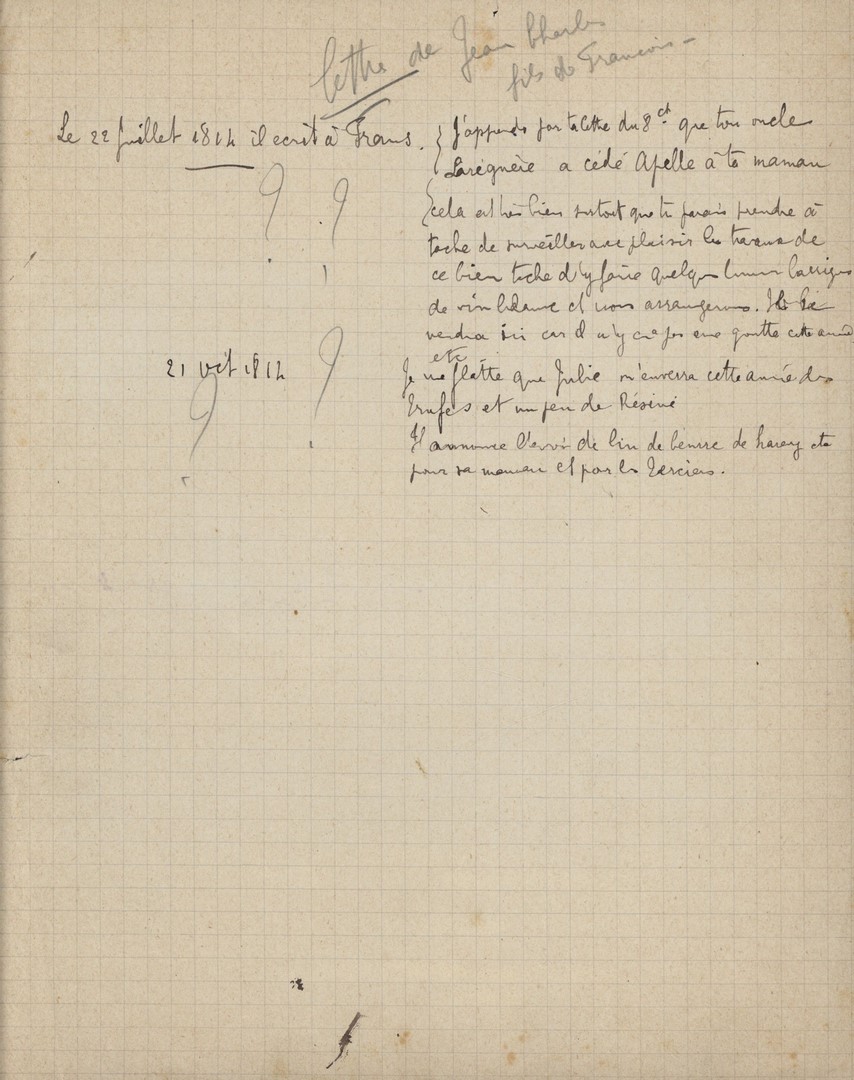 lettre de Jean Charles
fils de François -
Le 22 Juillet 1814 il ecrit à Frans.
J'apprends par ta lettre du 8 ct que ton oncle
Lareignère a cédé Apelle à ta maman
cela est très bien surtout que tu parais prendre à
tache de surveiller avec plaisir les travaux de
ce bien tache d'y faire quelques bonnes barriques
de vin blanc et nous arrangerons. Il se
vendra ici car il n'y en a pas une goutte cette année
etc
21 oct 1814
Je me flatte que Julie m'enverra cette année des
Trufes et un peu de Résiné
Il annonce l'envoi de lin de beurre de hareng etc
pour sa maman et par les Terciers.